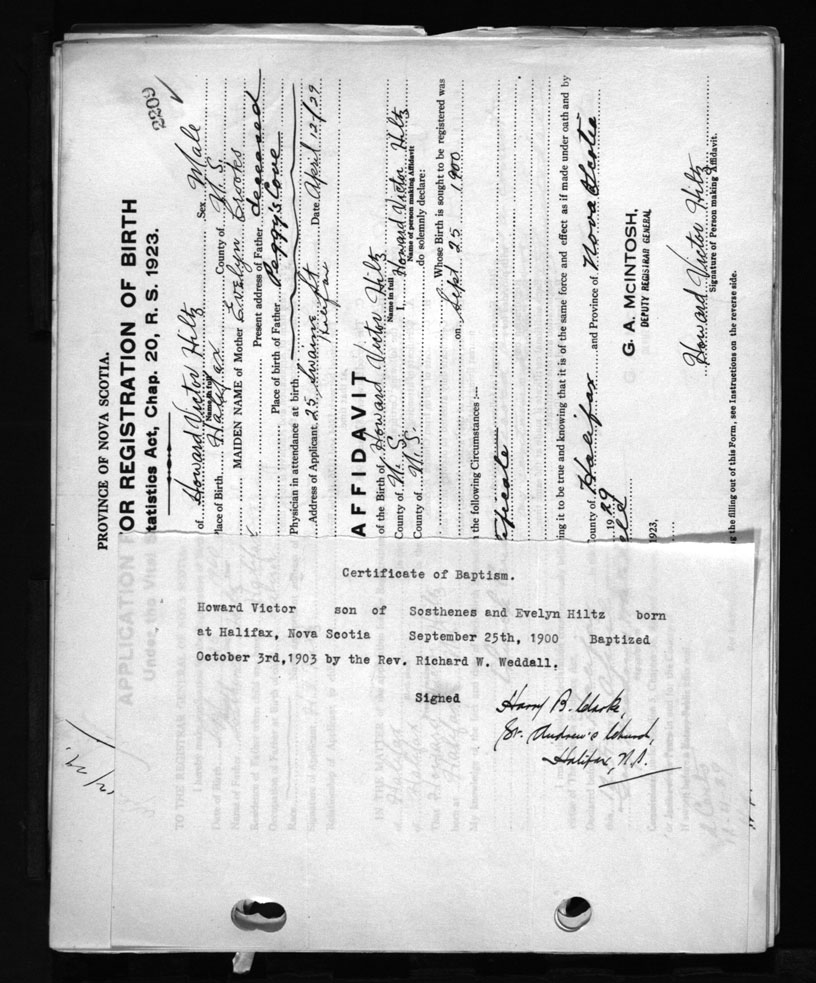 PROVINCE OF NOVA SCOTIA.
2209
OR REGISTRATION OF BIRTH
tatistics Act, Chap. 20, R. S. 1923.
of Howard Victor Hiltz Sex Male
Name in full
Place of Birth Halifax County of N. S.
MAIDEN NAME of Mother Evelyn Brooks
Present address of Father deceased
Place of birth of Father Peggy's Cove
Physician in attendance at birth
Address of Applicant 25 Swaine St Date April 12/29
Halifax
AFFIDAVIT
of the Birth of Howard Victor Hiltz
Name in full
County of N. S. I, Howard Victor Hiltz
Name of person making Affidavit
County of N. S. do solemnly declare:
Whose Birth is sought to be registered was
on Sept 25 1900
the following Circumstances :—
ing it to be true and knowing that it is of the same force and effect as if made under oath and by
County of Halifax and Province of Nova Scotia
1929
G. A. McINTOSH,
DEPUTY REGISTRAR GENERAL
1923,
Howard Victor Hiltz
Signature of Person making Affidavit.
the filling out of this Form, see Instructions on the reverse side.
Certificate of Baptism.
Howard Victor son of Sosthenes and Evelyn Hiltz born
at Halifax, Nova Scotia September 25th, 1900 Baptized
October 3rd,1903 by the Rev. Richard W. Weddall.
Signed Harry B. Clarke,
St. Andrew's Church,
Halifax, N.S.
APPLICATION
Under, the Vital